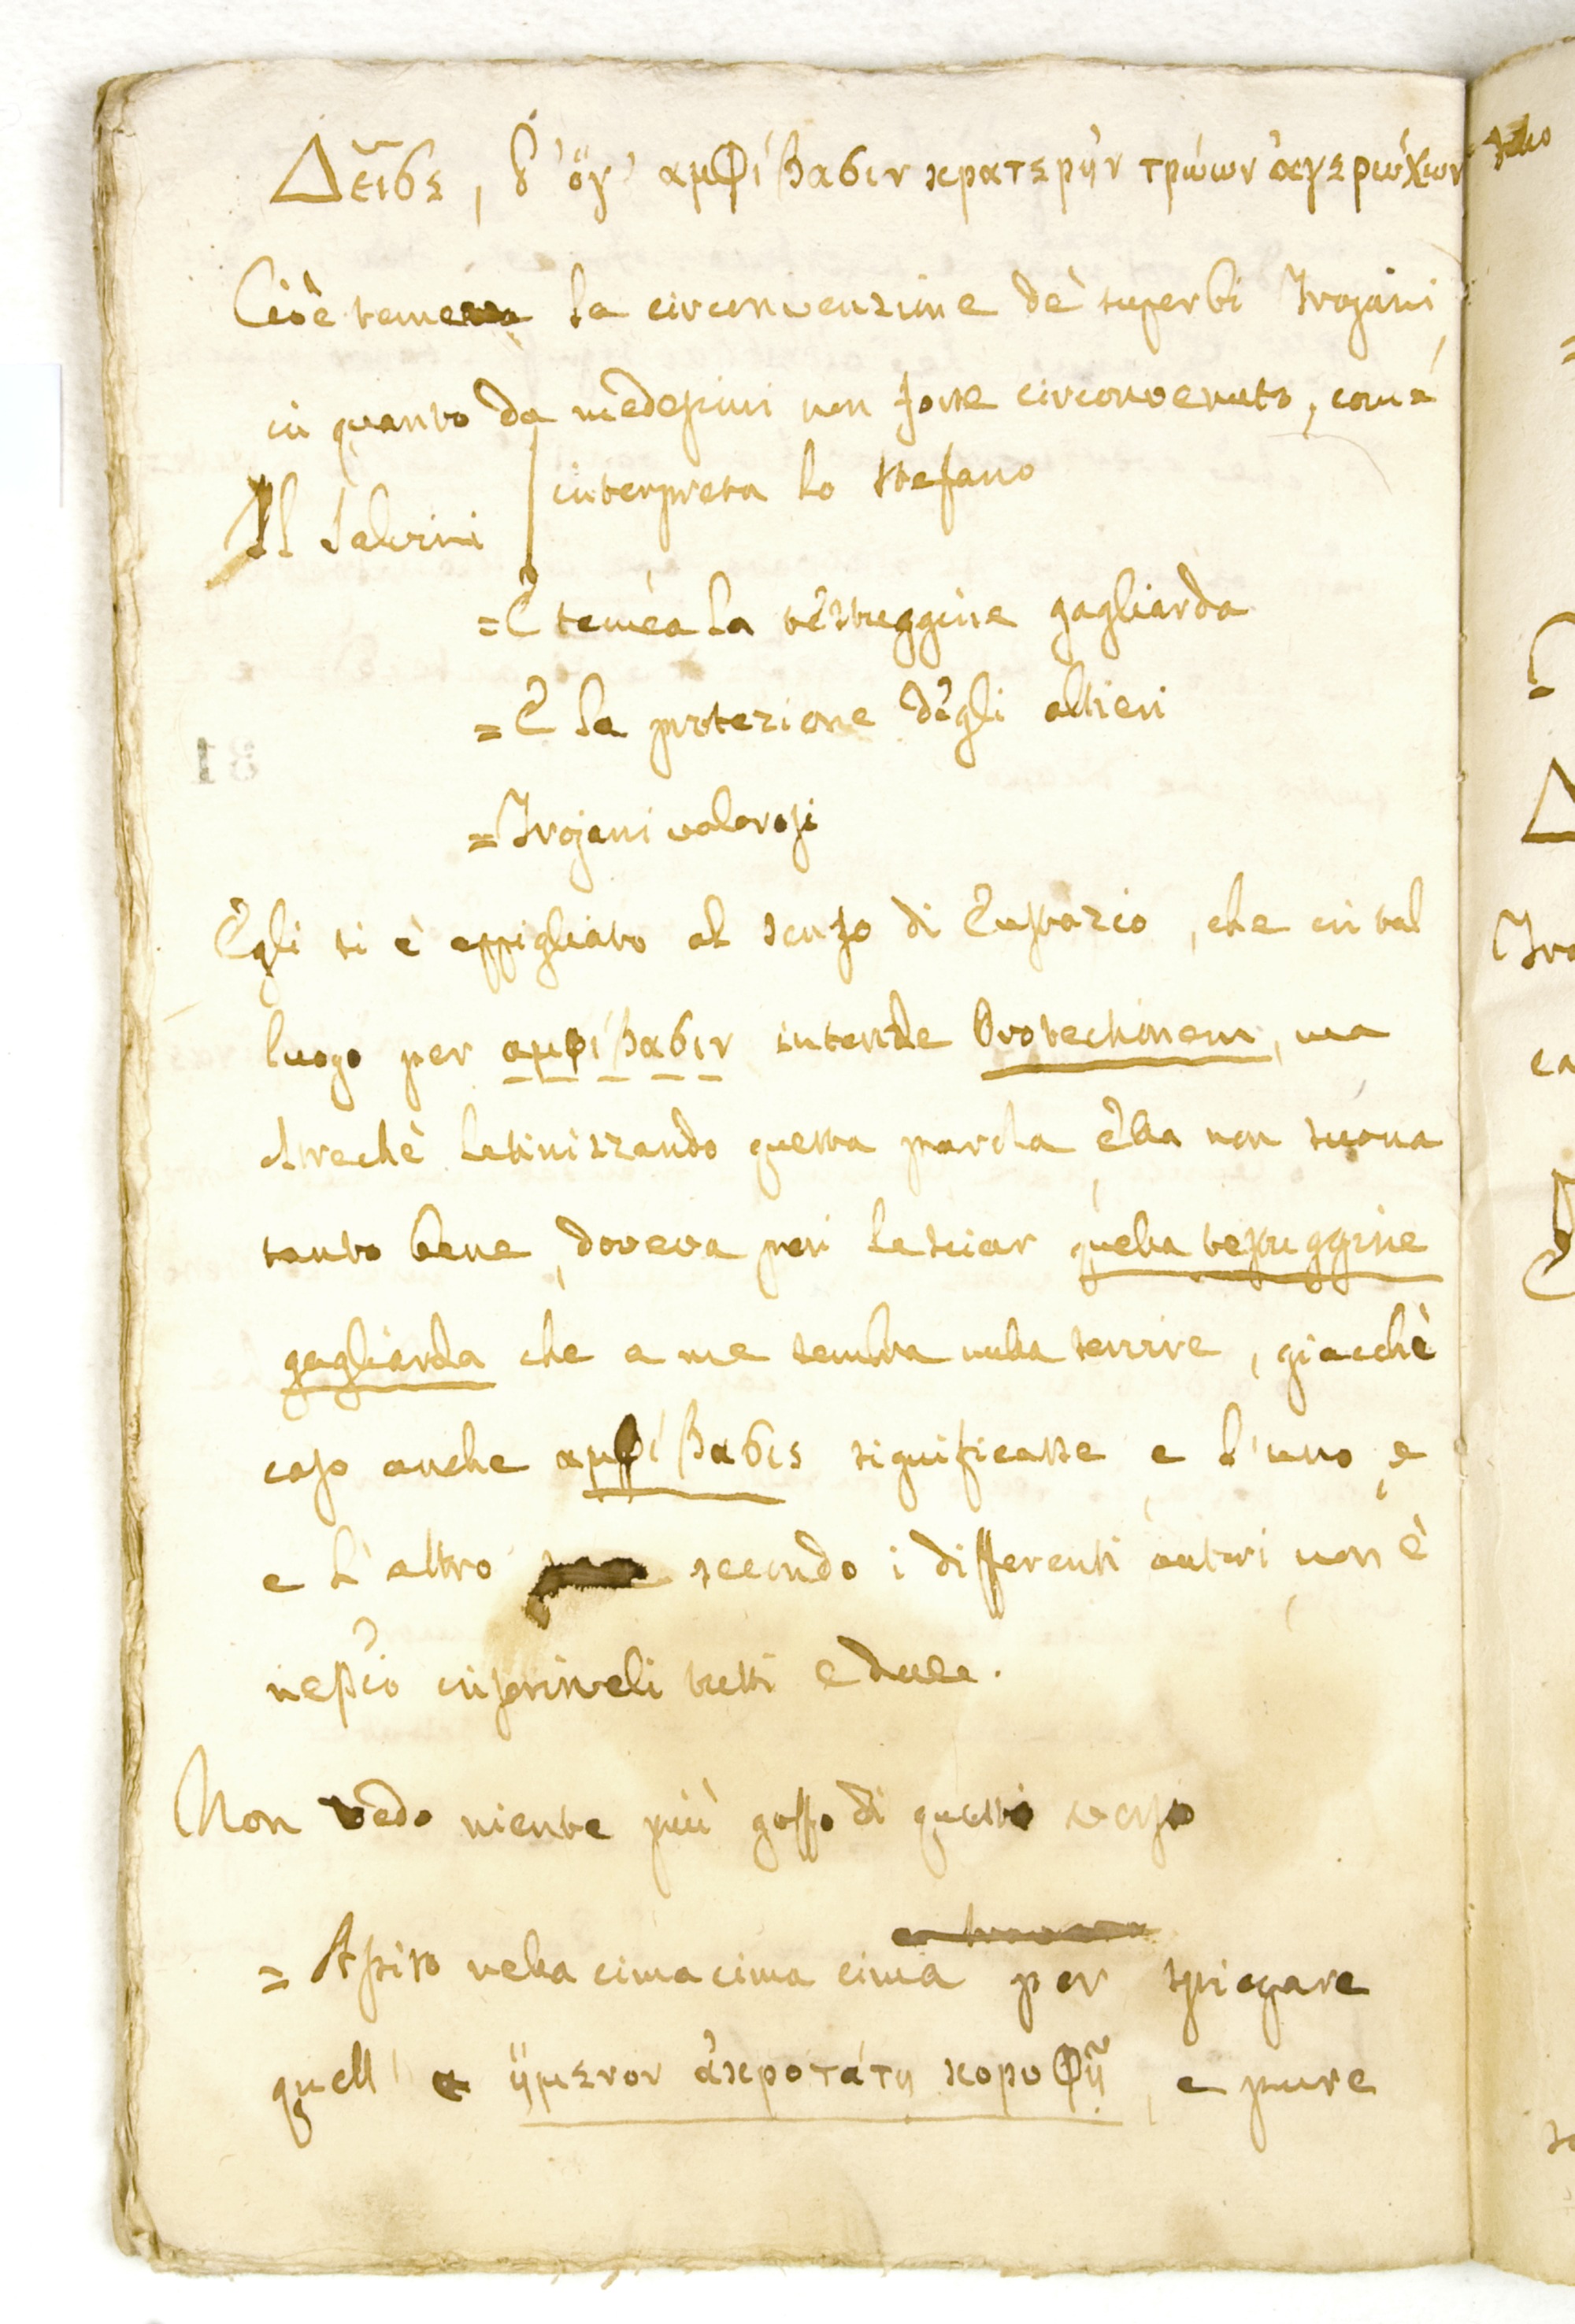 Δεῖσε, δ' ὅγ' αμφίβασιν κρατερὴν τρώων ἀγερώχων
Cioè temeva la circonvenzione de' superbi Trojani,
in quanto da medesimi non fosse circonvenuto, com'
interpreta lo Stefano
Il Salvini
= E temèa la testuggine gagliarda
= E la protezione degli altieri
= Trojani valorosi
Egli si è appigliato al senso di Eustazio, che in tal
luogo per αμφίβασιν intende Protectionem, ma
latinizzando questa parola ella non suona
tanto bene, doveva poi lasciar quella testuggine
gagliarda che a me sembra nulla servire, giacchè
caso anche αμφίβασις significasse e l'uno, e
e l'altro secondo i differenti autori non è
inserirveli tutti e due.
Non vedo niente più goffo di questo verso
= Assiso nella cima cima cima per spiegare
quell' ἥμενον ἀκροτάτη κορυφῇ, e pure
31